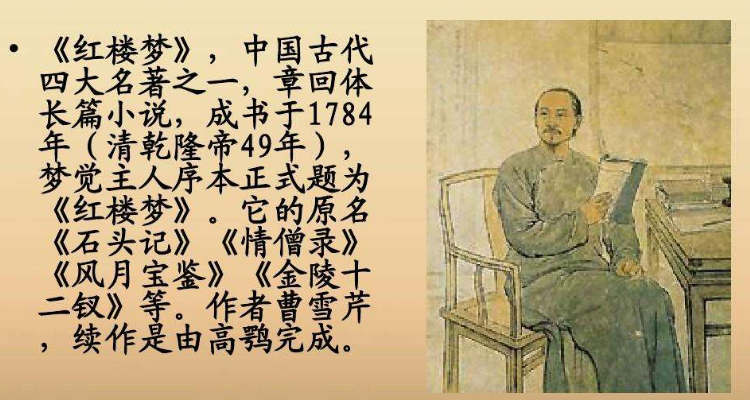 • 《红楼梦》，中国古代
四大名著之一，章回体
长篇小说，成书于1784
年（清乾隆帝49年），
梦觉主人序本正式题为
《红楼梦》。它的原名
《石头记》《情僧录》
《风月宝鉴》《金陵十
二钗》等。作者曹雪芹
，续作是由高鹗完成。